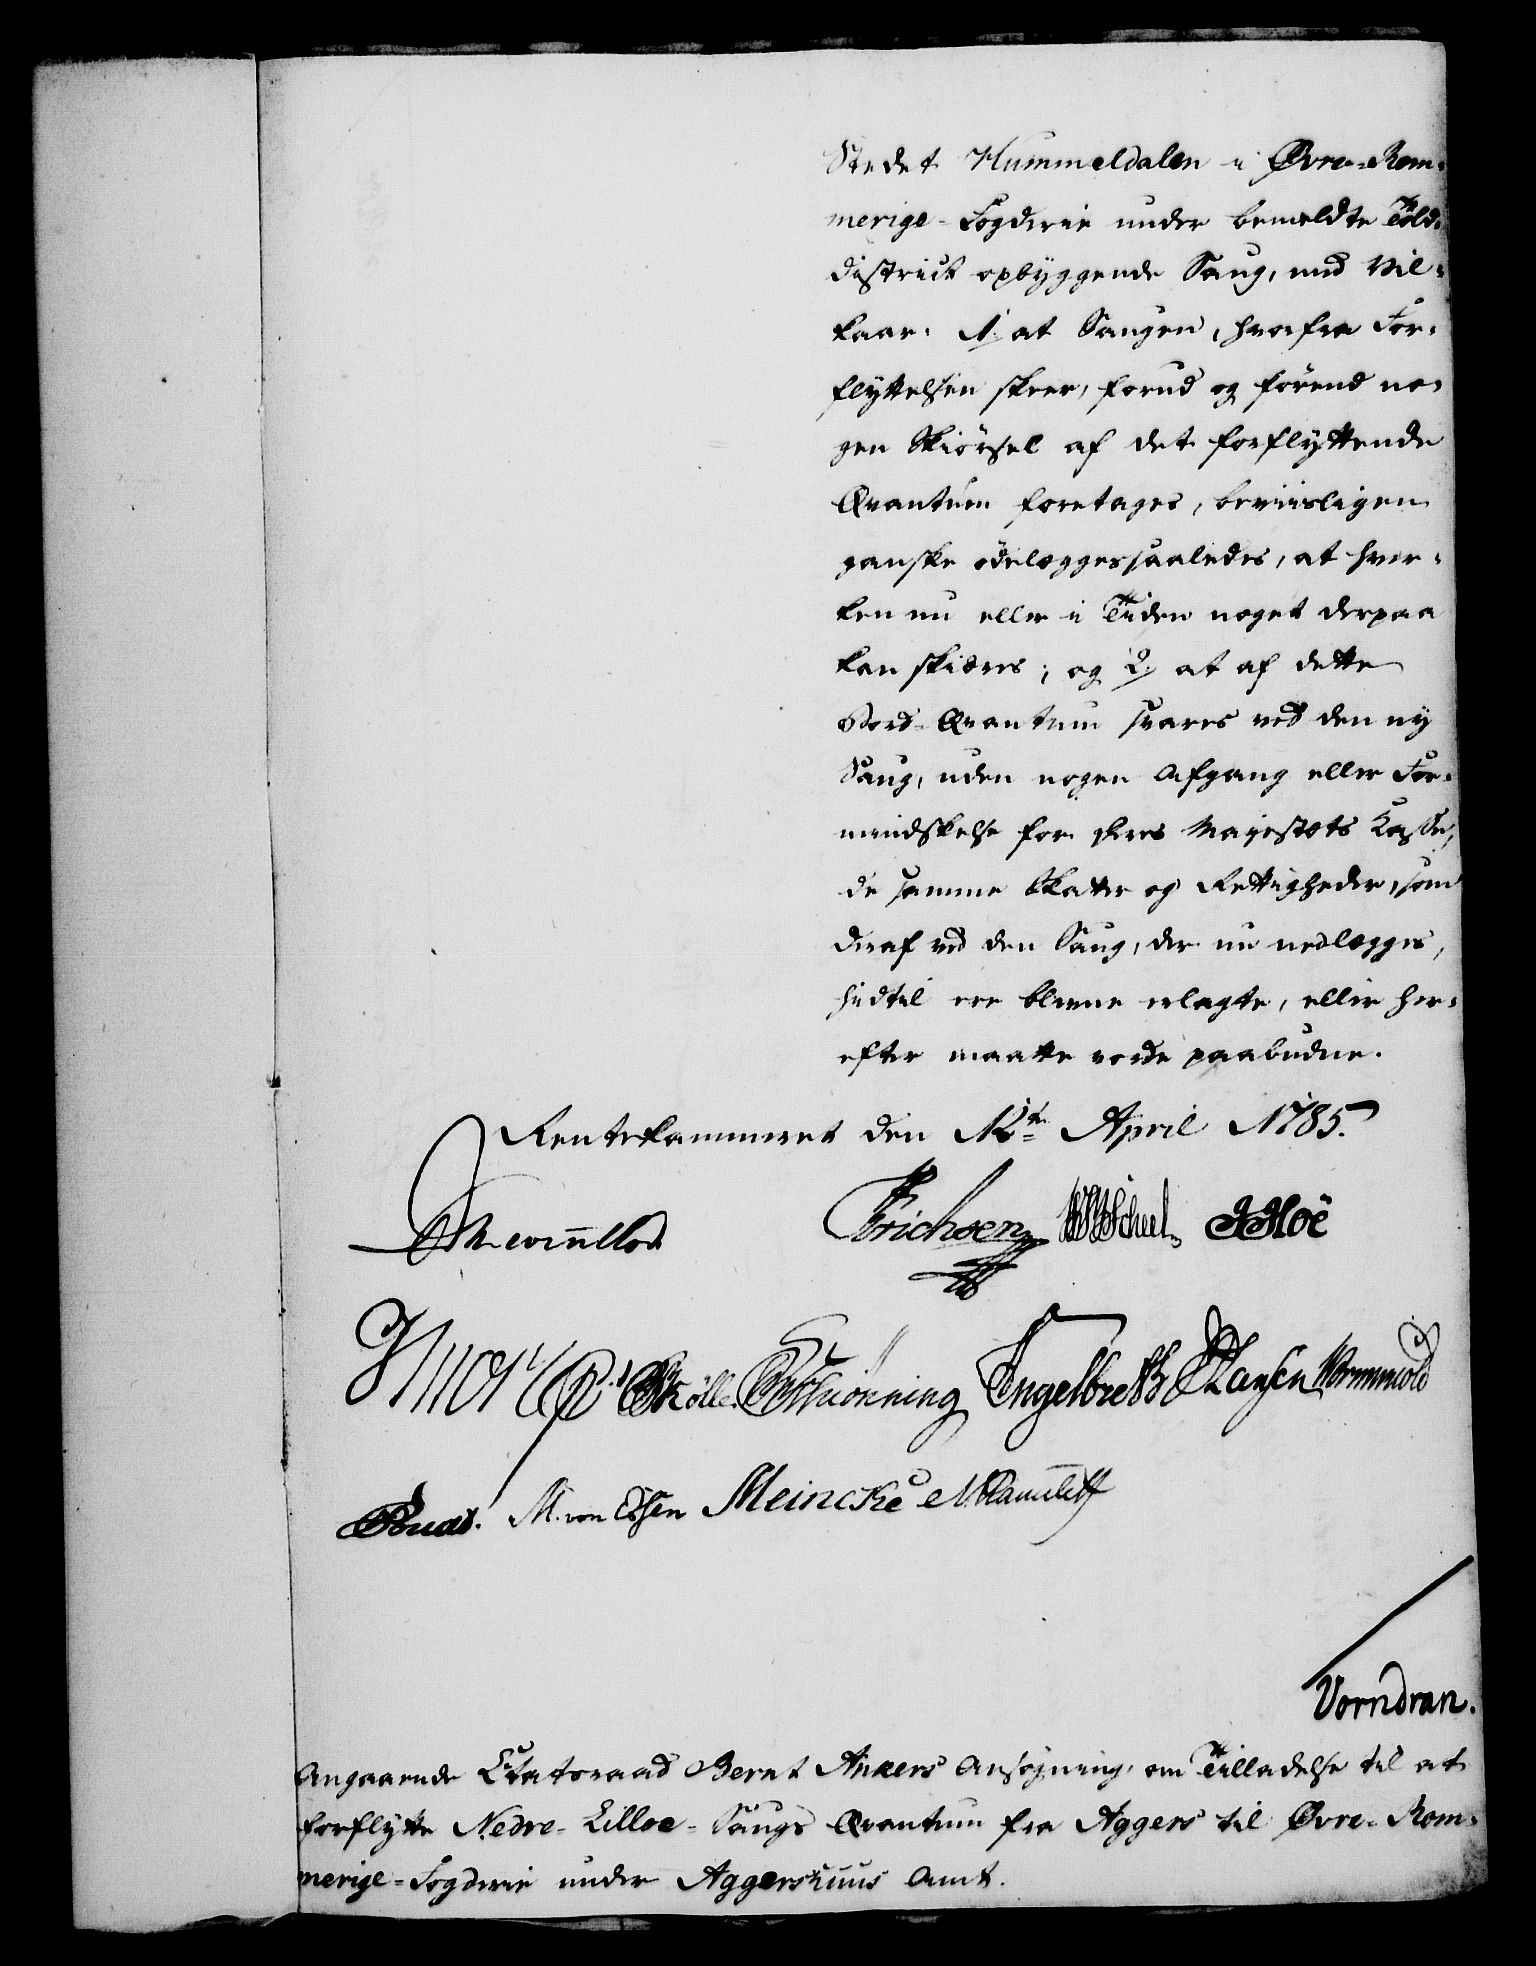 Stedet Hummeldalen i Øvre-Rom-
merige-Fogderie under bemeldte Told-
district opbyggende Saug, med Vil-
kaar: 1/ at Saugen, hvorfra For-
flyttelsen skeer, forud og førend no-
gen Skiørsel af det forflyttende
Qvantum foretages, beviisligen
ganske ødelægges saaledes, at hver-
ken nu eller i Tiden noget derpaa
kan skiæres; og 2/ at af dette
Bord-Qvantum svares ved den ny
Saug, uden nogen Afgang eller For-
mindskelse for Deres Majestæts Casse,
de samme Skatter og Rettigheder, som
deraf ved den Saug, der nu nedlægges,
hidtil ere blevne erlagte, eller her-
efter maatte vorde paabudne.
Rentekammeret den 12te April 1785.
Erichsen Scheel JHoë
Schiönning Engelbreth Hansen Wormskiold
M. von Essen Meincke
Vorndran.
Angaaende Etatsraad Bernt Ankers Ansøgning, om Tilladelse til at
forflytte Nedre-Lilloe-Saugs Qvantum fra Aggers til Øvre-Rom-
merige-Fogderie under Aggershuus Amt.